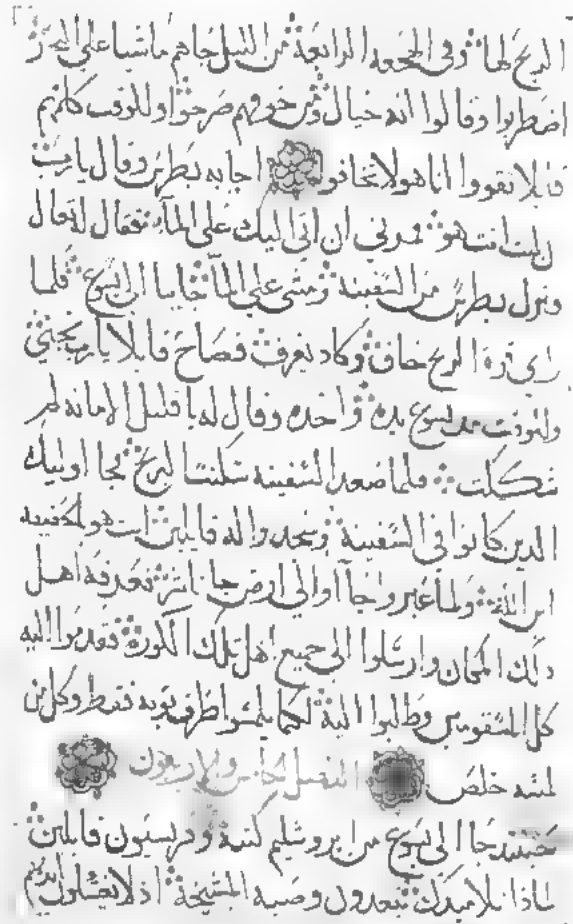 الريح لها وفى الهجعه الرابعة من الليل جاهم ماشيا على البحر
اضطربوا وقالوا انه خيال ومن خوفهم صرخوا وللوقت كلمهم
قايلا تقووا انا هو لا تخافوا اجابه بطرس وقال يا رب
ان كنت انت هو فمرنى ان اتى اليك على الماء فقال له تعال
ونزل بطرس من السفينة ومشى على الماء جايا الى يسوع فلما
راى قوة الريح خاف وكاد يغرق فصاح قايلا يا رب نجنى
وللوقت مد يسوع يده واخده وقال له يا قليل الامانه لم
شككت فلما صعد السفينه سكنت الريح فجا اوليك
الدين كانوا فى السفينة وسجدوا له قايلين انت هو بالحقيقه
ابن الله ولما عبروا جاآوا الى ارض جاناسر فعرفه اهل
دلك المكان وارسلوا الى جميع اهل تلك الكورة فقدموا اليه
كل المسقومين وطلبوا اليه لكيما يلمسوا طرف ثوبه فقط وكل من
لمسه خلص الفصل الخامس والاربعون
حينيد جا الى يسوع من ايروشليم كتبة وفريسيون قايلين
لمادا تلاميدك يتعدون وصية المشيخة اد لا يغسلون ايديهم